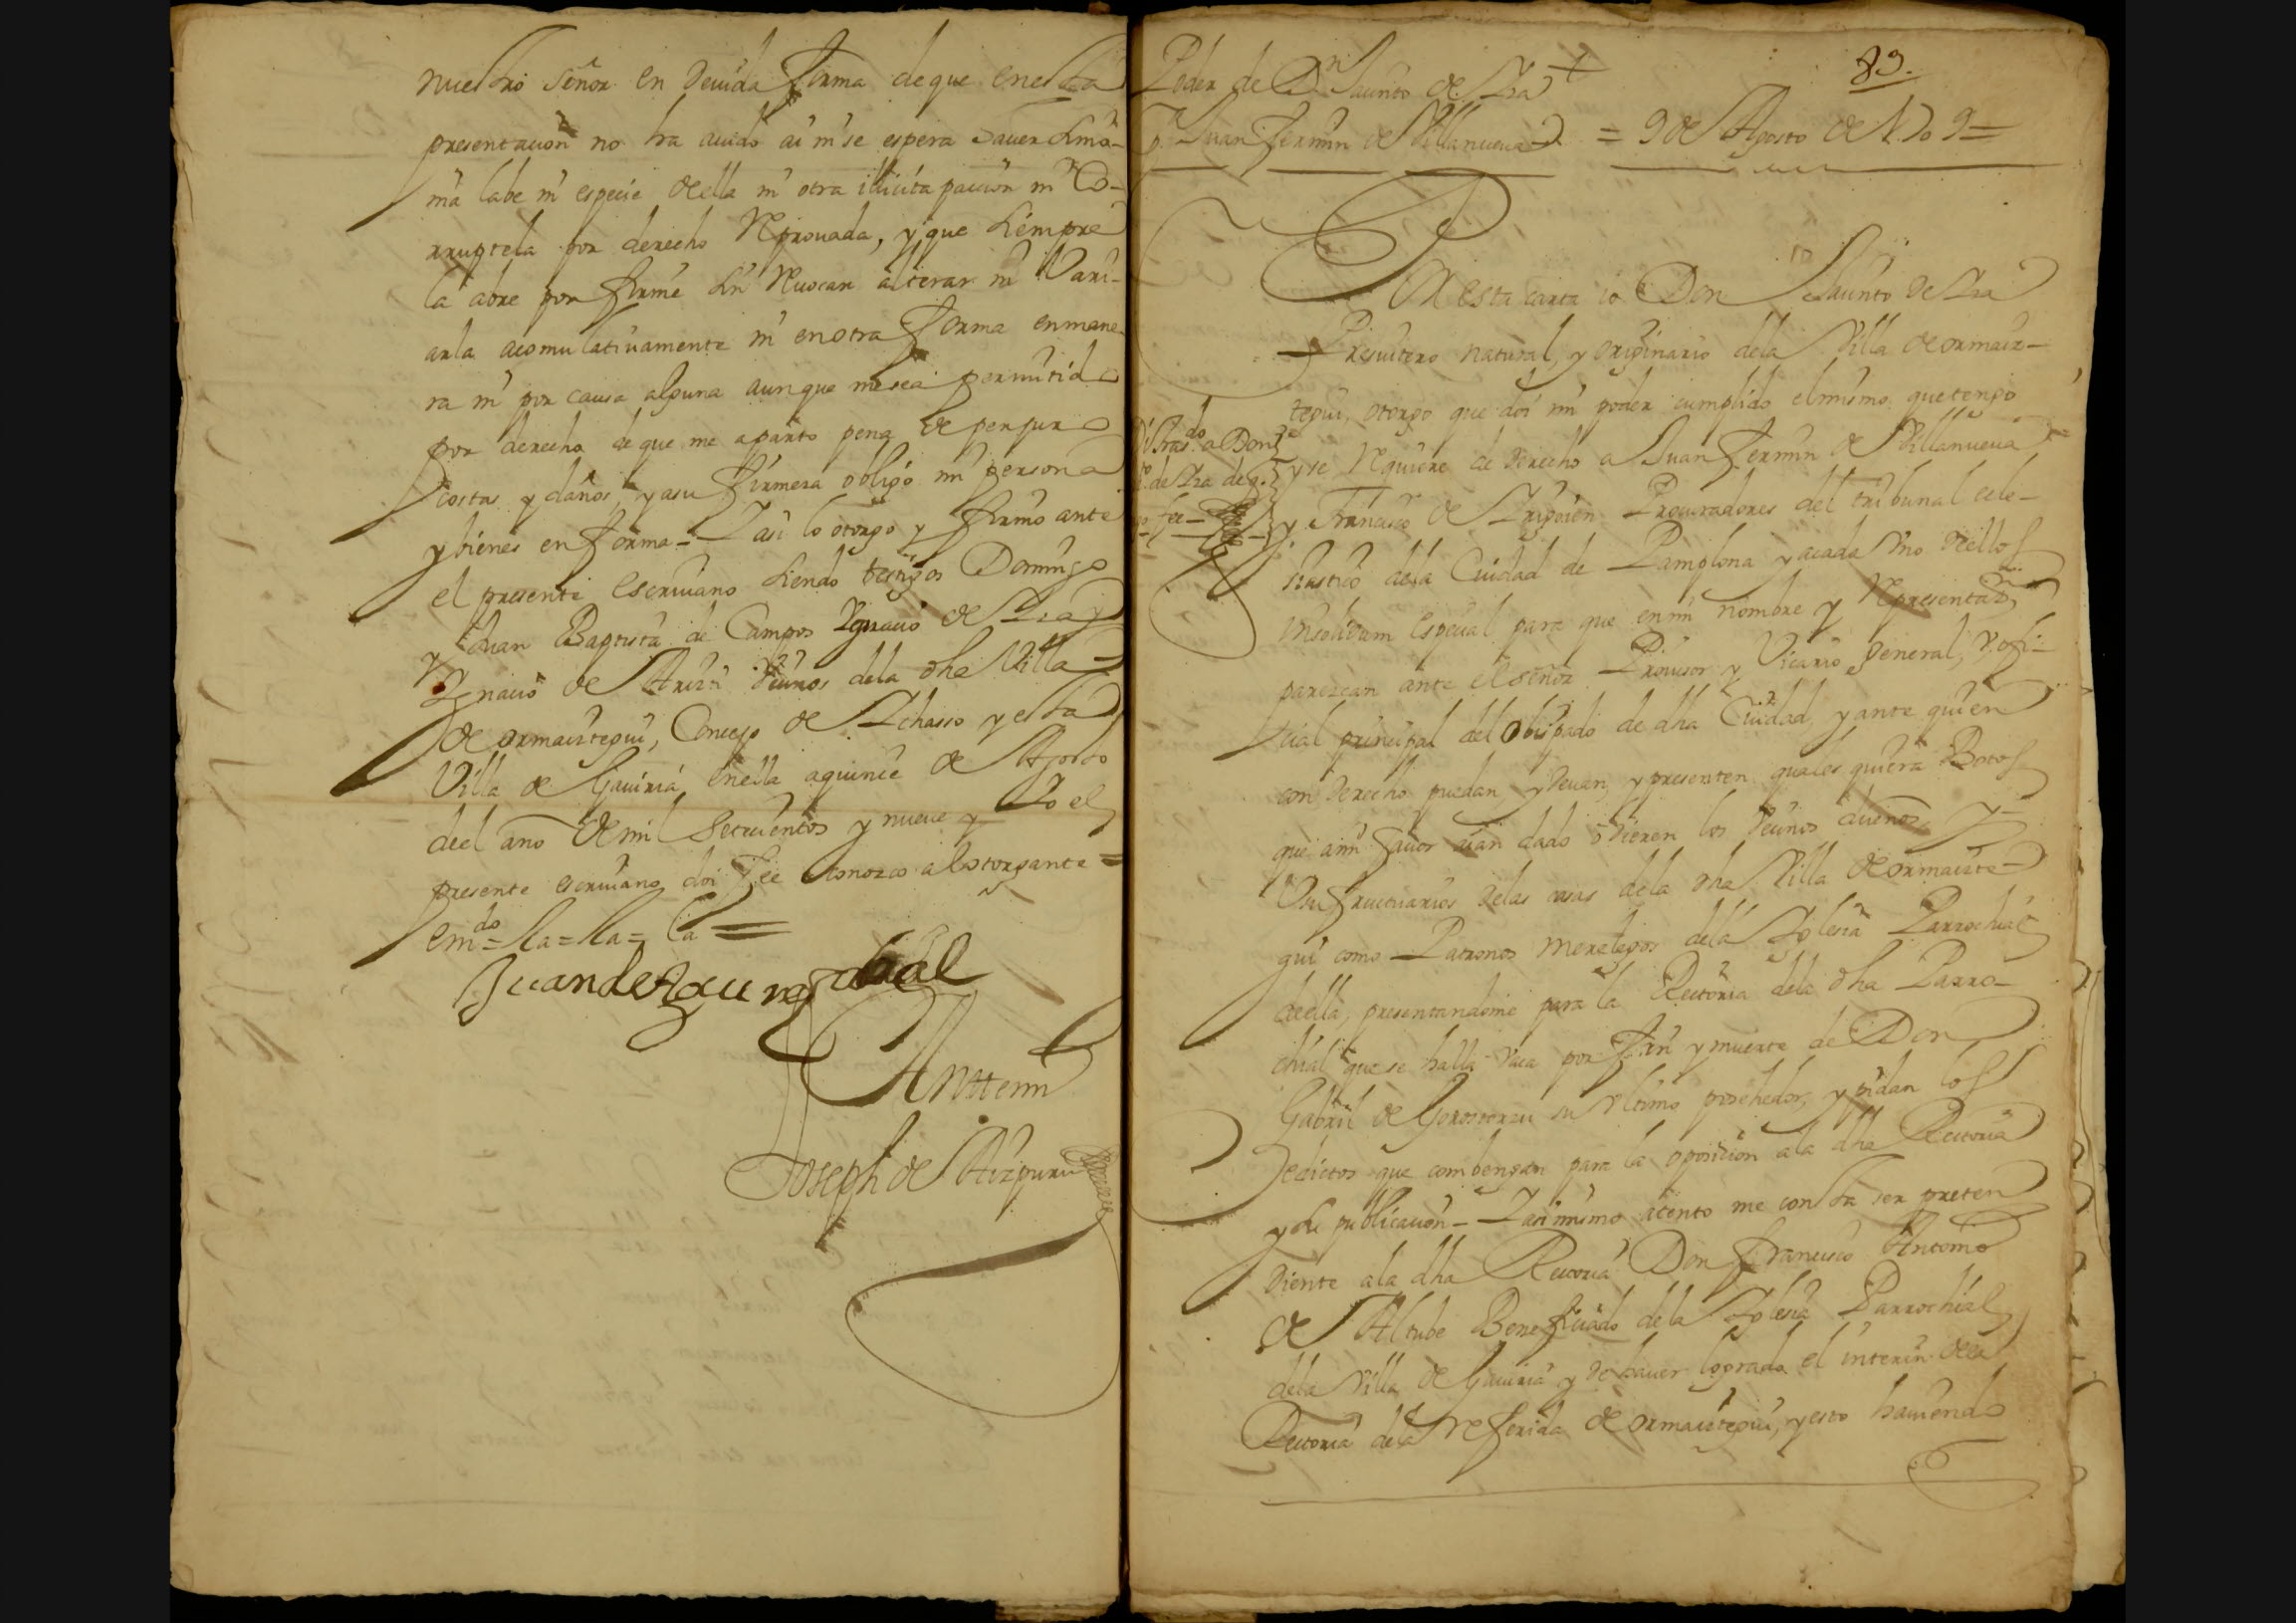 nuestro señor en Devida forma de que en esta
presentacion no ha avido ai ni se espera Saver simo-
nia labe ni especie de ella ni otra illicita paccion ni Co-
rruptela por derecho Reprovada, y que siempre
la abre por firme sin Revocar alterar ni Vari-
arla acomulativamente ni en otra forma en mane-
ra ni por causa alguna aunque me sea permitido
por derecho de que me aparto pena de perjuro
costas y daños, y a su firmeza obligo mi persona
y bienes en forma = Y asi lo otorgo y firmo ante
el presente escrivano siendo testigos Domingo
y Juan Baptista de Campos Ignacio de
Ygnacio de Veçinos dela dha Villa
de ormaiztegui, Concejo de Ychasso y esta
Villa de Gaviria, en ella a quince de Agosto
del año de mil Setecientos y nueve y Yo el
presente escrivano doi fee conozco al otorgante =
em.do = la = la = la =
Juan de
Ante mi
Joseph de Aizpuru
83.
Poder de Dn Jacinto de
p.a Juan fermin de Villanueva = 9 de Agosto de 1709 =
En esta carta io Don Jacinto de
Presvitero natural, y originario dela Villa de ormaiz-
tegui, otorgo que doi mi poder cumplido el mismo que tengo
y se Requiere de derecho a Juan fermin de Villanueva
y Francisco de Yrigoien Procuradores del tribunal ecle-
siastico dela Ciudad de Pamplona y a cada Vno de ellos
insolidum especial para que en mi nombre y Representaz.on
parezcan ante el señor Provisor y Vicario general, y ofi-
cial principal del Obispado de dha Ciudad, y ante quien
con derecho puedan y devan, y presenten quales quiera Botos
que a mi favor aian dado o dieren los Veçinos dueños, y
Vsufructuarios de las casas dela dha Villa de ormaizte-
gui como Patronos merelegos dela Yglesia Parrochial
de ella, presentandome para la Rectoria dela dha Parro-
chial que se halla Vaca por fin y muerte de Don
Gabriel de Gorostorzu su Vltimo posehedor, y pidan los
edictos que combengan para la oposicion ala dha Rectoria
y su publicacion = Y asimismo atento me consta ser preten
diente ala dha Rectoria Don francisco Antonio
de Altube Beneficiado dela Yglesia Parrochial
dela Villa de Gaviria y de haver logrado el interin dela
Rectoria dela referida de ormaiztegui, y esto haviendo